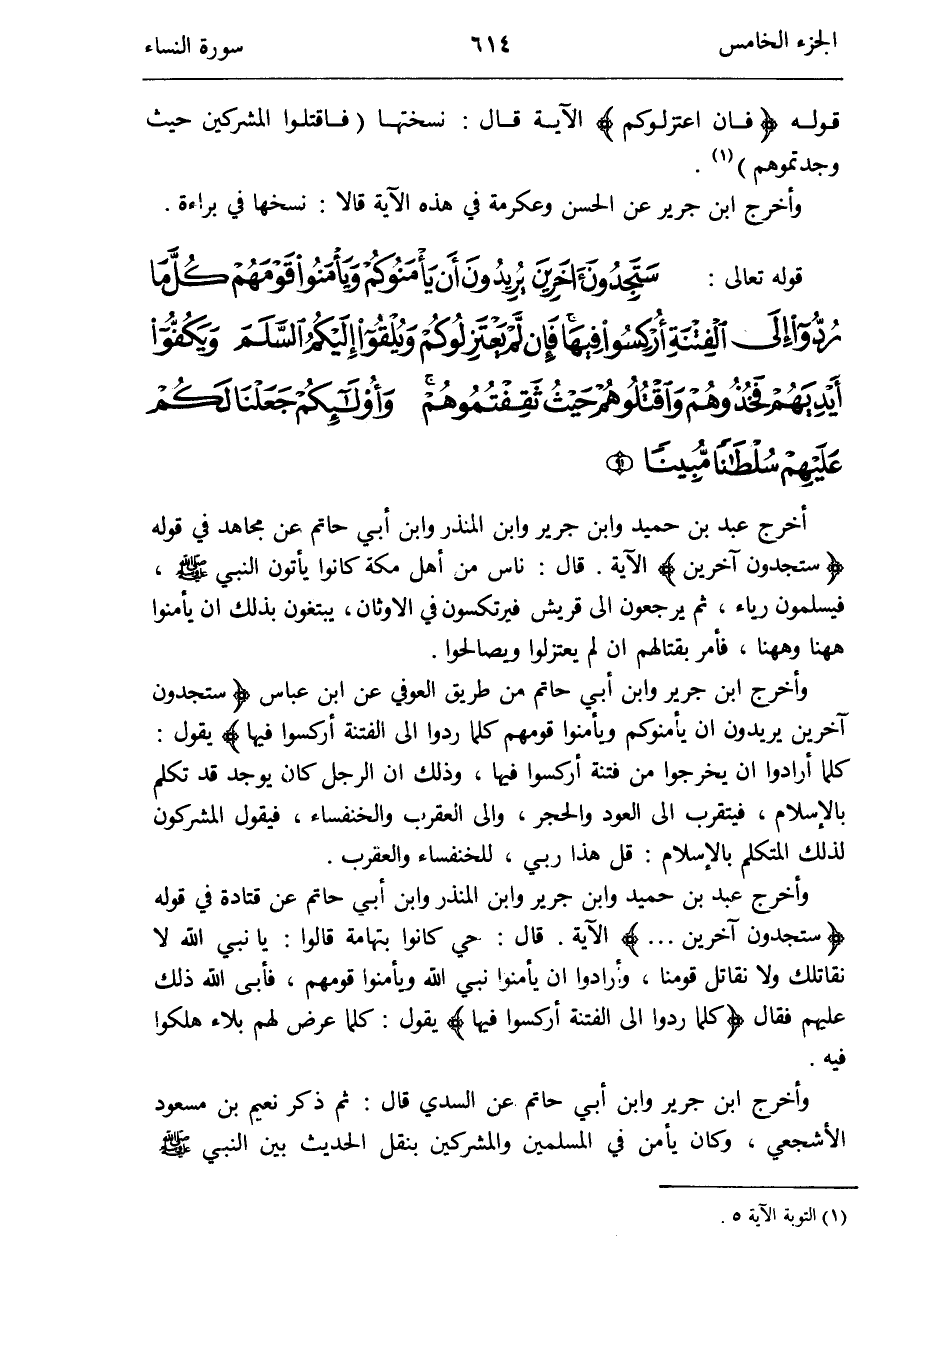 الجزء الخامس ٦١٤ سورة النساء
قوله ﴿ فان اعتزلوكم ﴾ الآية قال : نسختها ( فاقتلوا المشركين حيث
وجدتموهم )(١) .
وأخرج ابن جرير عن الحسن وعكرمة في هذه الآية قالا : نسخها في براءة .
قوله تعالى : سَتَجِدُونَ ءَاخَرِينَ يُرِيدُونَ أَن يَأْمَنُوكُمْ وَيَأْمَنُوا۟ قَوْمَهُمْ كُلَّ مَا
رُدُّوٓا۟ إِلَى ٱلْفِتْنَةِ أُرْكِسُوا۟ فِيهَا ۚ فَإِن لَّمْ يَعْتَزِلُوكُمْ وَيُلْقُوٓا۟ إِلَيْكُمُ ٱلسَّلَمَ وَيَكُفُّوٓا۟
أَيْدِيَهُمْ فَخُذُوهُمْ وَٱقْتُلُوهُمْ حَيْثُ ثَقِفْتُمُوهُمْ ۚ وَأُو۟لَٰٓئِكُمْ جَعَلْنَا لَكُمْ
عَلَيْهِمْ سُلْطَٰنًا مُّبِينًا ٩١
أخرج عبد بن حميد وابن جرير وابن المنذر وابن أبي حاتم عن مجاهد في قوله
﴿ ستجدون آخرين ﴾ الآية . قال : ناس من أهل مكة كانوا يأتون النبي ﷺ ،
فيسلمون رياء ، ثم يرجعون الى قريش فيرتكسون في الاوثان ، يبتغون بذلك ان يأمنوا
ههنا وههنا ، فأمر بقتالهم ان لم يعتزلوا ويصالحوا .
وأخرج ابن جرير وابن أبي حاتم من طريق العوفي عن ابن عباس ﴿ ستجدون
آخرين يريدون ان يأمنوكم ويأمنوا قومهم كلما ردوا الى الفتنة أركسوا فيها ﴾ يقول :
كلما أرادوا ان يخرجوا من فتنة أركسوا فيها ، وذلك ان الرجل كان يوجد قد تكلم
بالإسلام ، فيتقرب الى العود والحجر ، والى العقرب والخنفساء ، فيقول المشركون
لذلك المتكلم بالإسلام : قل هذا ربي ، للخنفساء والعقرب .
وأخرج عبد بن حميد وابن جرير وابن المنذر وابن أبي حاتم عن قتادة في قوله
﴿ ستجدون آخرين ... ﴾ الآية . قال : حي كانوا بتهامة قالوا : يا نبي الله لا
نقاتلك ولا نقاتل قومنا ، وأرادوا ان يأمنوا نبي الله ويأمنوا قومهم ، فأبى الله ذلك
عليهم فقال ﴿ كلما ردوا الى الفتنة أركسوا فيها ﴾ يقول : كلما عرض لهم بلاء هلكوا
فيه .
وأخرج ابن جرير وابن أبي حاتم عن السدي قال : ثم ذكر نعيم بن مسعود
الأشجعي ، وكان يأمن في المسلمين والمشركين بنقل الحديث بين النبي ﷺ
(١) التوبة الآية ٥ .